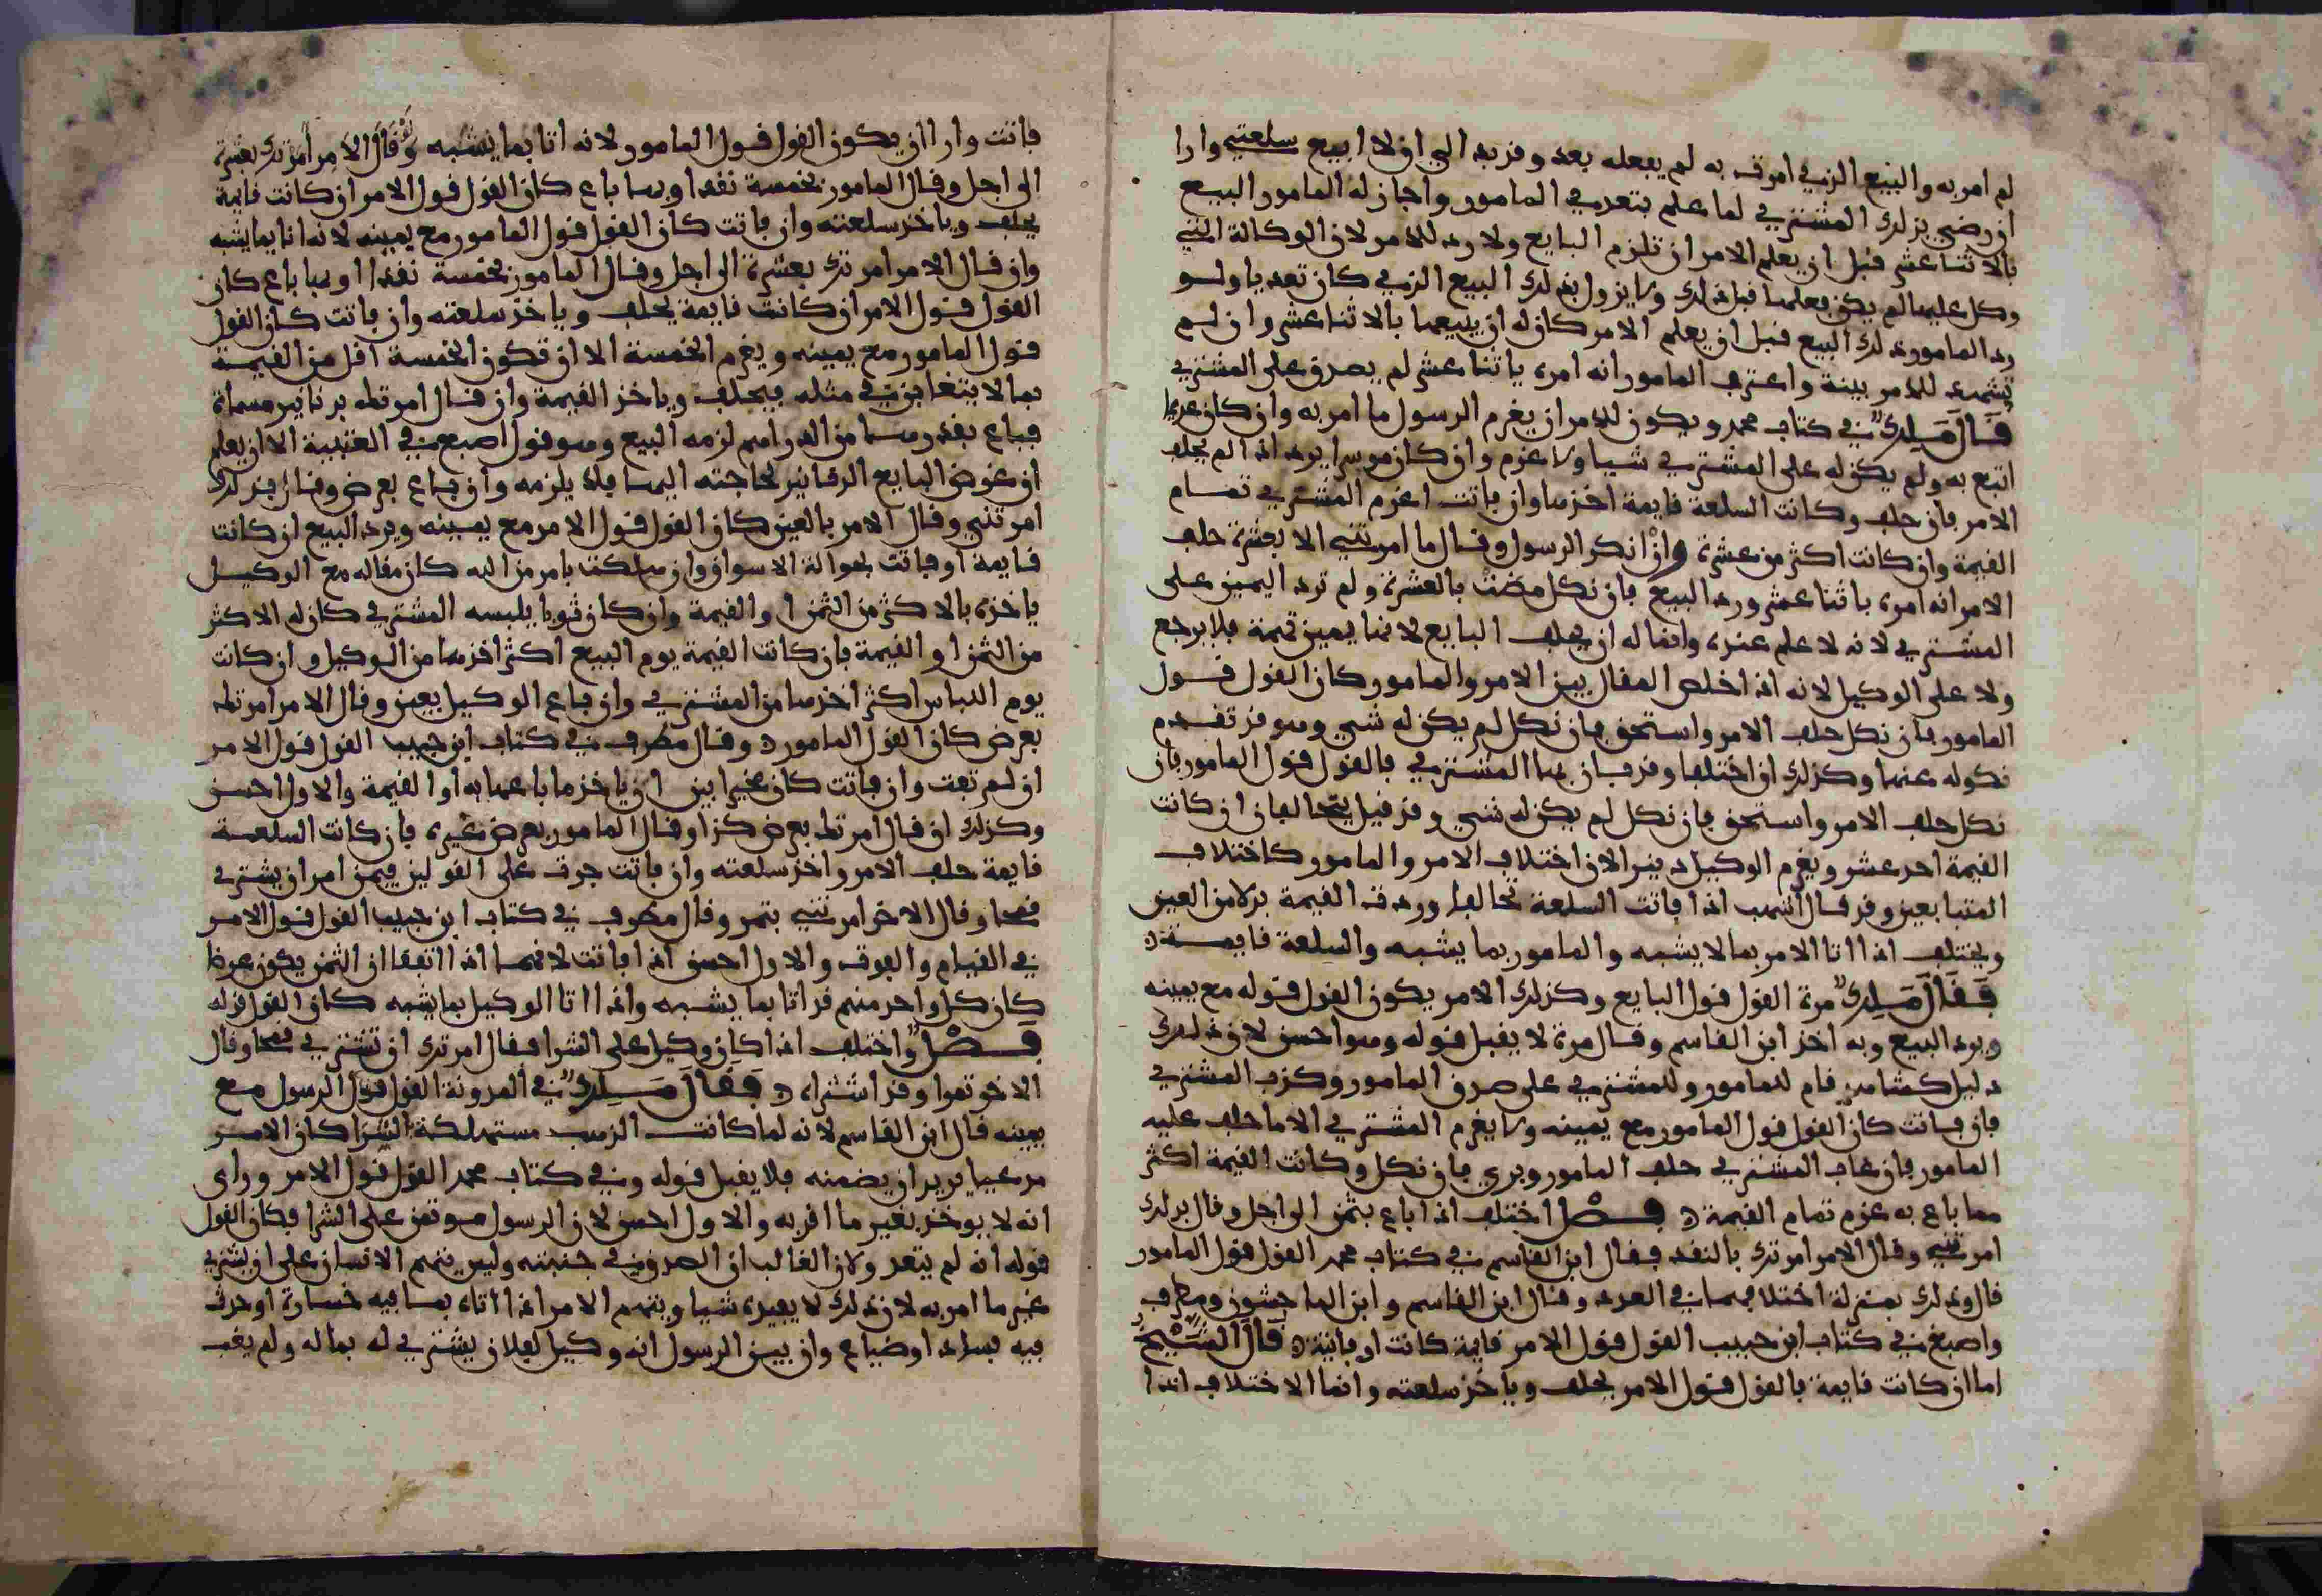 لم امر به والبيع الذي امرت به لم يفعله بعد وقد بدا لي ان لا ابيع سلعتي وارا
ان رضي بذلك المشتري لما علم بتعدي المامور واجاز له المامور البيع
بالاثنا عشر قبل ان يعلم الامر ان تلزم البايع ولا رد للامر لان الوكالة التي
وكل عليها لم يكن فعلها قبل ذلك ولا يزول بذلك البيع الذي كان تعديا ولو
رد المامور ذلك البيع قبل ان يعلم الامر كان له ان يبيعها بالاثنا عشر وان لم
تشهد للامر بينة واعترف المامور انه امره باثنا عشر لم يصدق على المشتري
قال ملك في كتاب محمد ويكون للامر ان يغرم الرسول ما امر به وان كان عديما
اتبع به ولم يكن له على المشتري شيا ولا غرم وان كان موسرا يرد اذا لم يحلف
الامر فان حلف وكانت السلعة قايمة اخذها وان فاتت اغرم المشتري تمام
القيمة وان كانت اكثر من عشرة وان انكر الرسول وقال ما امرتني الا بعشرة حلف
الامر انه امره باثنا عشر ورد البيع فان نكل مضت بالعشرة ولم ترد اليمين على
المشتري لانه لا علم عنده وانما له ان يحلف البايع لانها يمين تهمة فلا يرجع
ولا على الوكيل لانه اذا خلص المقال بين الامر والمامور كان القول قول
المامور فان نكل حلف الامر واستحق فان نكل لم يكن له شي وهو قد تقدم
نكوله عنها وكذلك ان اختلفا وقد فات بها المشتري فالقول قول المامور فان
نكل حلف الامر واستحق فان نكل لم يكن له شي وقد قيل يتحالفان ان كانت
القيمة احد عشر ويغرم الوكيل دينر الان اختلاف الامر والمامور كاختلاف
المتبايعين وقد قال اشهب اذا فاتت السلعة تحالفا وردت القيمة بدلا من العين
ويختلف اذا اتا الامر بما لا يشبه والمامور بما يشبه والسلعة قايمة
فقال ملك مرة القول قول البايع وكذلك الامر يكون القول قوله مع يمينه
ويرد البيع وبه اخذ ابن القاسم وقال مرة لا يقبل قوله وهو احسن لان ذلك
دليل كشاهد قام للمامور وللمشتري على صدق المامور وكذب المشتري
فان فاتت كان القول قول المامور مع يمينه ولا يغرم المشتري الا ما حلف عليه
المامور فان غاب المشتري حلف المامور وبري فان نكل وكانت القيمة اكثر
مما باع به غرم تمام القيمة فصل اختلف اذا باع بثمن الى اجل وقال بذلك
امرتني وقال الامر امرتك بالنقد فقال ابن القاسم في كتاب محمد القول قول المامور
قال وذلك بمنزلة اختلافهما في العدد وقال ابن القاسم وابن الماجشون ومطرف
واصبغ في كتاب ابن حبيب القول قول الامر قايمة كانت او فايتة قال الشيخ
اما ان كانت قايمة فالقول قول الامر يحلف وياخذ سلعته وانما الاختلاف اذا
فاتت وارا ان يكون القول قول المامور لانه اتا بما يشبه وان قال الامر امرتك بعشرة
الى اجل وقال المامور بخمسة نقدا وبها باع كان القول قول الامر ان كانت قايمة
يحلف وياخذ سلعته وان فاتت كان القول قول المامور مع يمينه لانه اتا بما يشبه
وان قال الامر امرتك بعشرة الى اجل وقال المامور بخمسة نقدا او بها باع كان
القول قول الامر ان كانت قايمة يحلف وياخذ سلعته وان فاتت كان القول
قول المامور مع يمينه ويغرم الخمسة الا ان تكون الخمسة اقل من القيمة
بما لا يتغابن في مثله فيحلف وياخذ القيمة وان قال امرتك بدنانير مسماة
فباع بقدرها من الدراهم لزمه البيع وهو قول اصبغ في العتبية الا ان يعلم
ان غرض البايع الدنانير لحاجته اليها فلا يلزمه وان باع بعرض وقال بذلك
امرتني وقال الامر بالعين كان القول قول الامر مع يمينه ويرد البيع ان كانت
قايمة او فاتت بحوالة الاسواق وان هلكت بامر من الله كان مقاله مع الوكيل
ياخذه بالاكثر من الثمن او القيمة وان كان ثوبا يلبسه المشتري كان له الاكثر
من الثمن او القيمة فان كانت القيمة يوم البيع اكثر اخذها من الوكيل وان كانت
يوم اللباس اكثر اخذها من المشتري وان باع الوكيل بعين وقال الامر امرتك
بعرض كان القول المامور وقال مطرف في كتاب ابن حبيب القول قول الامر
ان لم تفت وان فاتت كان مخيرا بين ان ياخذ ما باعها به او القيمة والاول احسن
وكذلك ان قال امرتك بعرض كذا وقال المامور بعرض غيره فان كانت السلعة
قايمة حلف الامر واخذ سلعته وان فاتت جرت على القولين فيمن امر ان يشتري
قمحا وقال الاخر امرتني بتمر وقال مطرف في كتاب ابن حبيب القول قول الامر
في القيام والفوت والاول احسن اذا فاتت لانهما اذا اتفقا ان الثمن يكون عرضا
كان كل واحد منهم قد اتا بما يشبه واذا اتا الوكيل بما يشبه كان القول قوله
فصل واختلف اذا كان وكيل على الشرا فقال امرتك ان تشتري قمحا وقال
الاخر تمرا وقد اشتراه فقال ملك في المدونة القول قول الرسول مع
يمينه قال ابن القاسم لانه لما كانت الذهب مستهلكة الشرا كان الامر
مدعيا يريد ان يضمنه فلا يقبل قوله وفي كتاب محمد القول قول الامر وراى
انه لا يوخذ بغير ما اقر به والاول احسن لان الرسول موتمن على الشرا فكان القول
قوله انه لم يتعد ولان الغالب ان الصدق في جنبته وليس يتهم الانسان على ان يشتري
غير ما امر به لان ذلك لا يفيده شيا ويتهم الامر اذا اتاه بما فيه خسارة او حدث
فيه فساد او ضياع وان بين الرسول انه وكيل لفلان يشتري له بماله ولم يغب